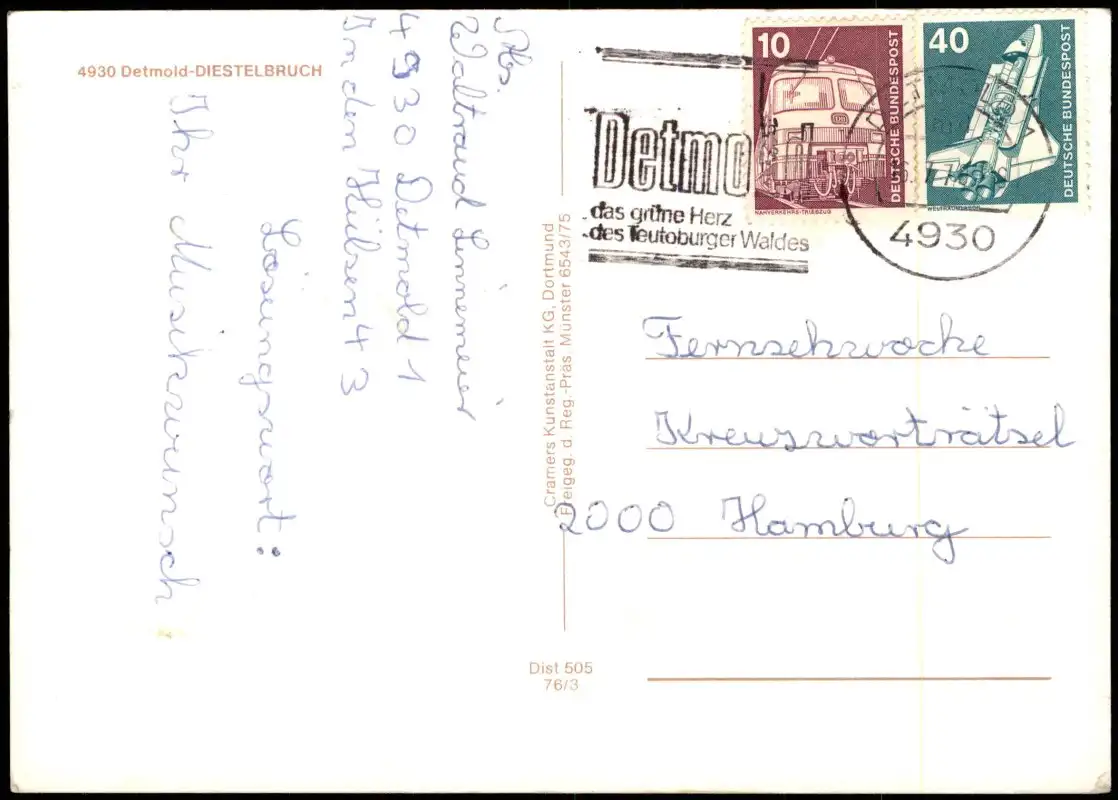 4930 Detmold-DIESTELBRUCH
Abs.
Waltraud Linnemeier
4930 Detmold 1
In den Hülsen 43
Lösungswort:
Ihr Musikwunsch
Cramers Kunstanstalt KG, Dortmund
Freigeg. d. Reg.-Präs Münster 6543/75
Dist 505
76/3
Detmo
das grüne Herz
des Teutoburger Waldes
10
DEUTSCHE BUNDESPOST
NAHVERKEHRS-TRIEBZUG
40
DEUTSCHE BUNDESPOST
4930
Fernsehwoche
Kreuzworträtsel
2000 Hamburg